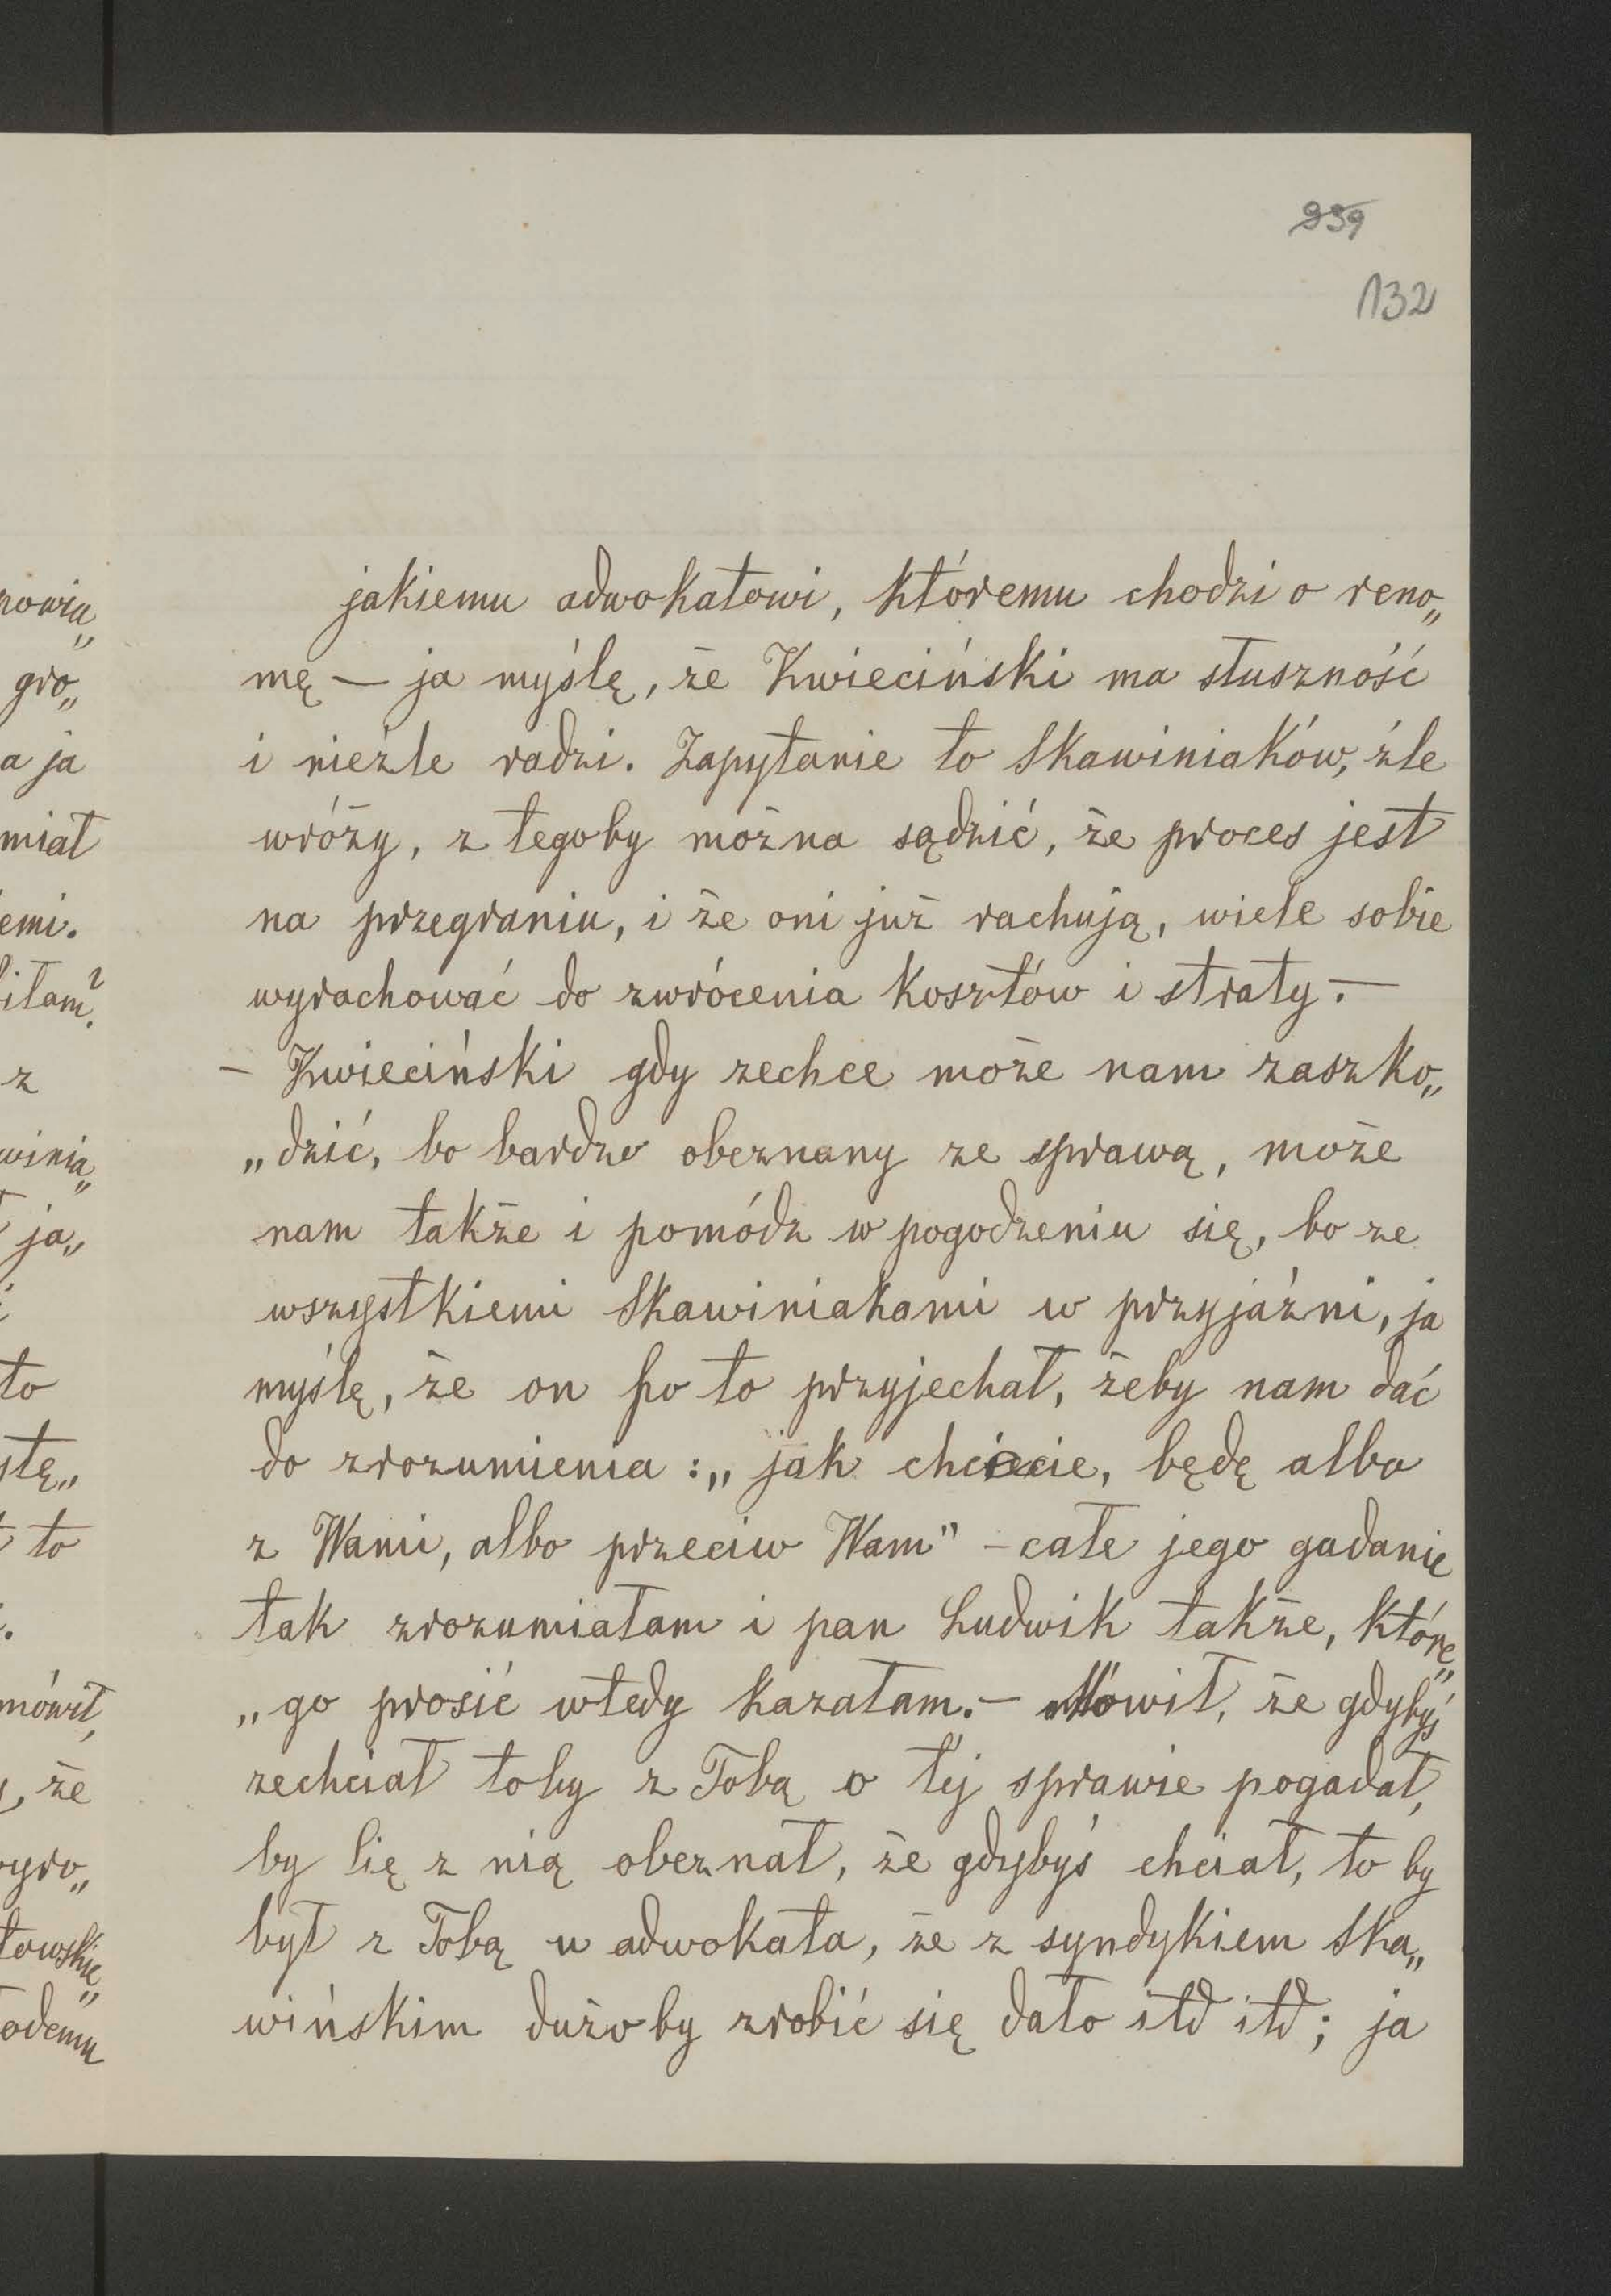 959
132
jakiemu adwokatowi, któremu chodzi o reno„
mę — ja myślę, że Kwieciński ma słuszność
i nieźle radzi. Zapytanie to Skawiniaków, źle
wróży, z tegoby można sądzić, że proces jest
na przegraniu, i że oni już rachują, wiele sobie
wyrachować do zwrócenia kosztów i straty. —
– Kwieciński gdy zechce może nam zaszko„
„dzić, bo bardzo obeznany ze sprawą, może
nam także i pomódz w pogodzeniu się, bo ze
wszystkiemi Skawiniakami w przyjaźni, ja
myślę, że on po to przyjechał, żeby nam dać
do zrozumienia : „jak chcecie, będę albo
z Wami, albo przeciw Wam" – całe jego gadanie
tak zrozumiałam i pan Ludwik także, które„
„go prosić wtedy kazałam. – Mówił, że gdybyś
zechciał toby z Tobą o téj sprawie pogadał,
by się z nią obeznał, że gdybyś chciał, to by
był z Tobą u adwokata, że z syndykiem Ska„
wińskim dużo by zrobić się dało itd itd; ja
powia„
gro„
a ja
miał
emi.
z
winia„
ja„
to
stę„
to
mówił,
że
wyro„
towskie„